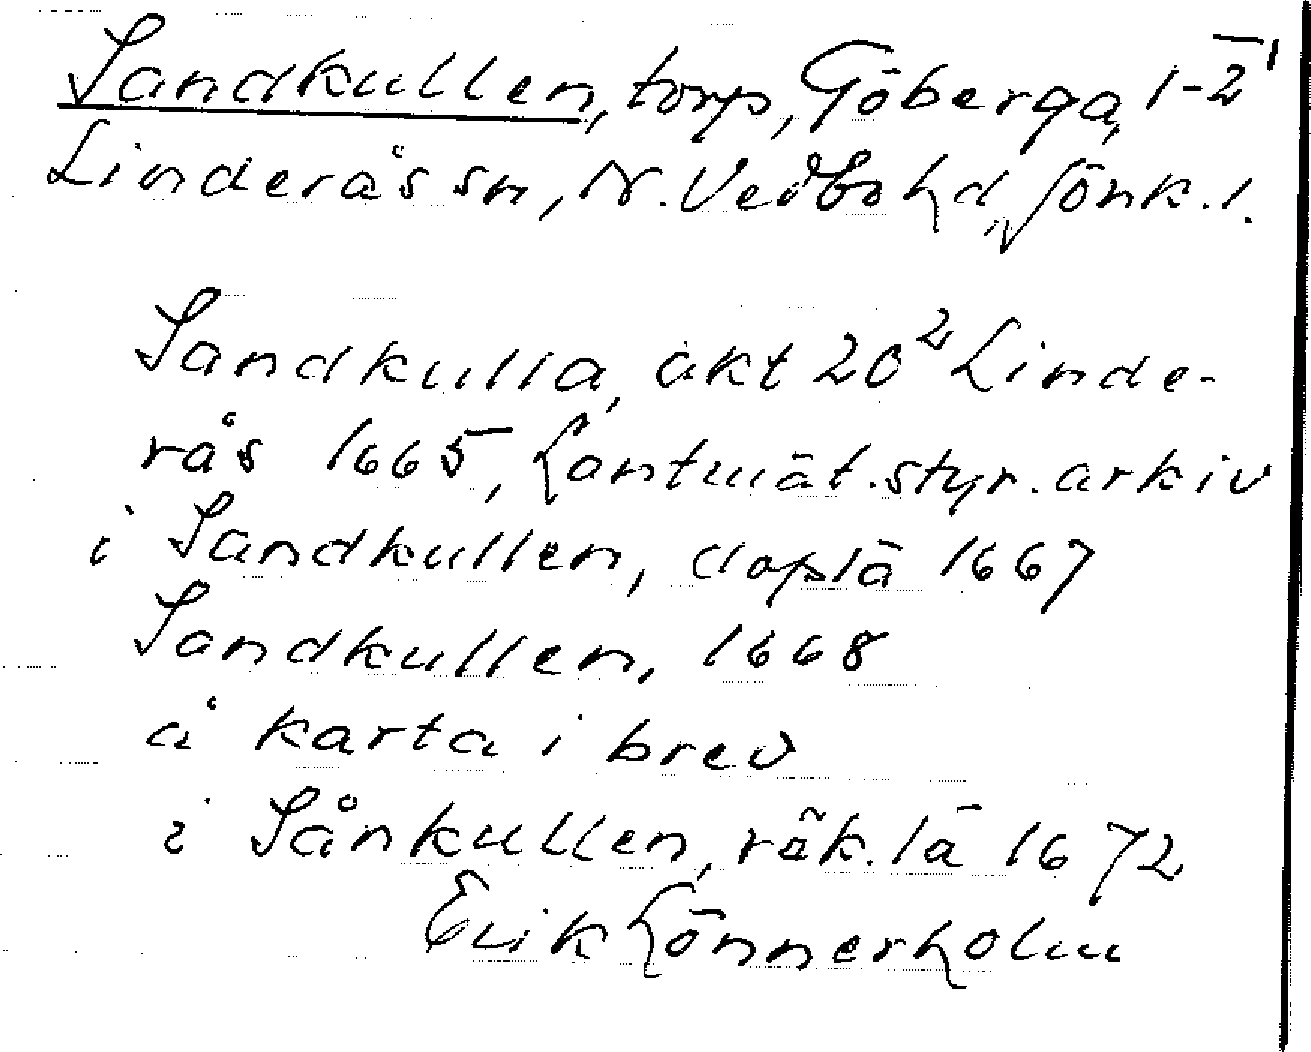 Sandkullen, torp, Göberga, 1-2¹
Linderås sn, N. Vedbo hd, Jönk. l.
Sandkulla, akt 20² Linde-
rås 1665, Lantmät.styr. arkiv
i Sandkullen, doplä 1667
Sandkullen, 1668
å karta i brev
i Sånkullen, räk. lä 1672
Erik Lönnerholm